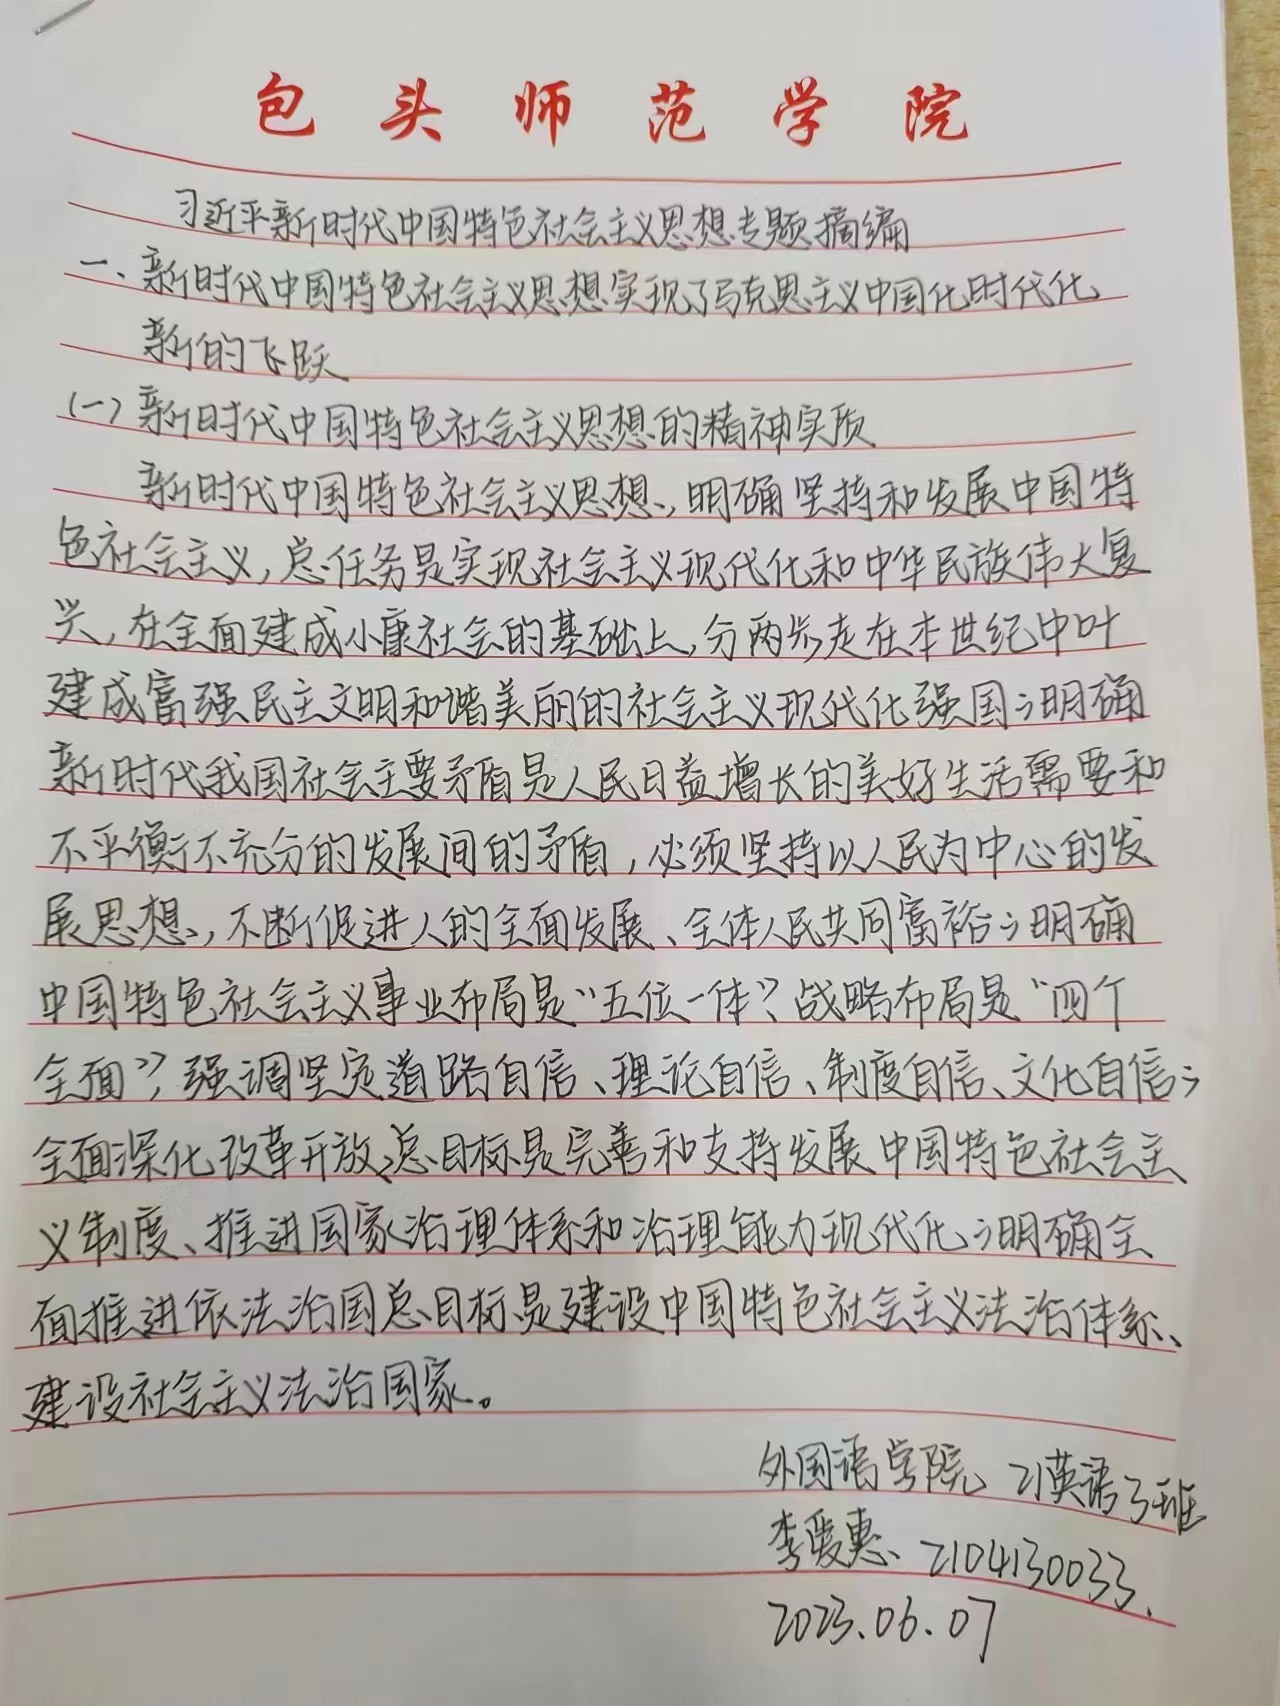 包头师范学院
习近平新时代中国特色社会主义思想专题摘编
一、新时代中国特色社会主义思想实现了马克思主义中国化时代化
新的飞跃
(一)新时代中国特色社会主义思想的精神实质
新时代中国特色社会主义思想,明确坚持和发展中国特
色社会主义,总任务是实现社会主义现代化和中华民族伟大复
兴,在全面建成小康社会的基础上,分两步走在本世纪中叶
建成富强民主文明和谐美丽的社会主义现代化强国;明确
新时代我国社会主要矛盾是人民日益增长的美好生活需要和
不平衡不充分的发展间的矛盾,必须坚持以人民为中心的发
展思想,不断促进人的全面发展、全体人民共同富裕;明确
中国特色社会主义事业布局是“五位一体”,战略布局是“四个
全面”,强调坚定道路自信、理论自信、制度自信、文化自信;
全面深化改革开放,总目标是完善和支持发展中国特色社会主
义制度、推进国家治理体系和治理能力现代化;明确全
面推进依法治国总目标是建设中国特色社会主义法治体系、
建设社会主义法治国家。
外国语学院 21英语3班
李爱惠 2104130033.
2023.06.07